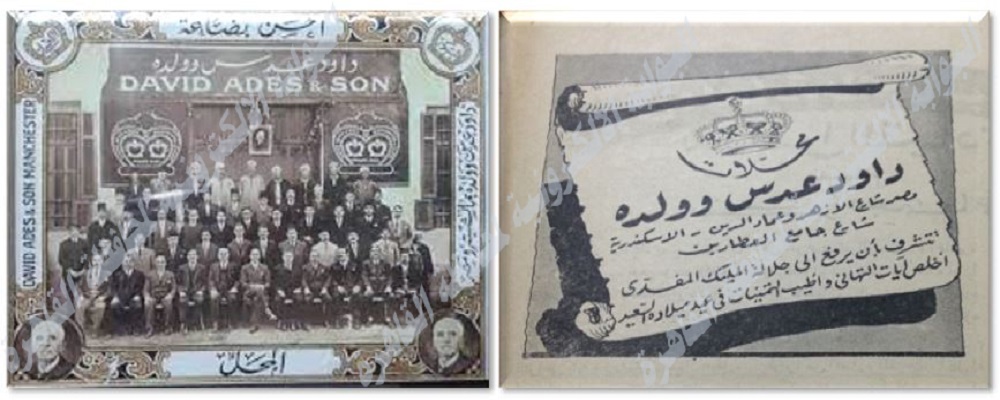 أحسن بضاعة
داود عدس وولده
DAVID ADES & SON
DAVID ADES & SON MANCHESTER
المحل
محلات
داود عدس وولده
مصر شارع الازهر وعماد الدين - الاسكندرية
شارع جامع العطارين
تتشرف بأن يرفع الى جلالة المليك المفدى
أخلص آيات التهاني وأطيب التمنيات في عيد ميلاده السعيد